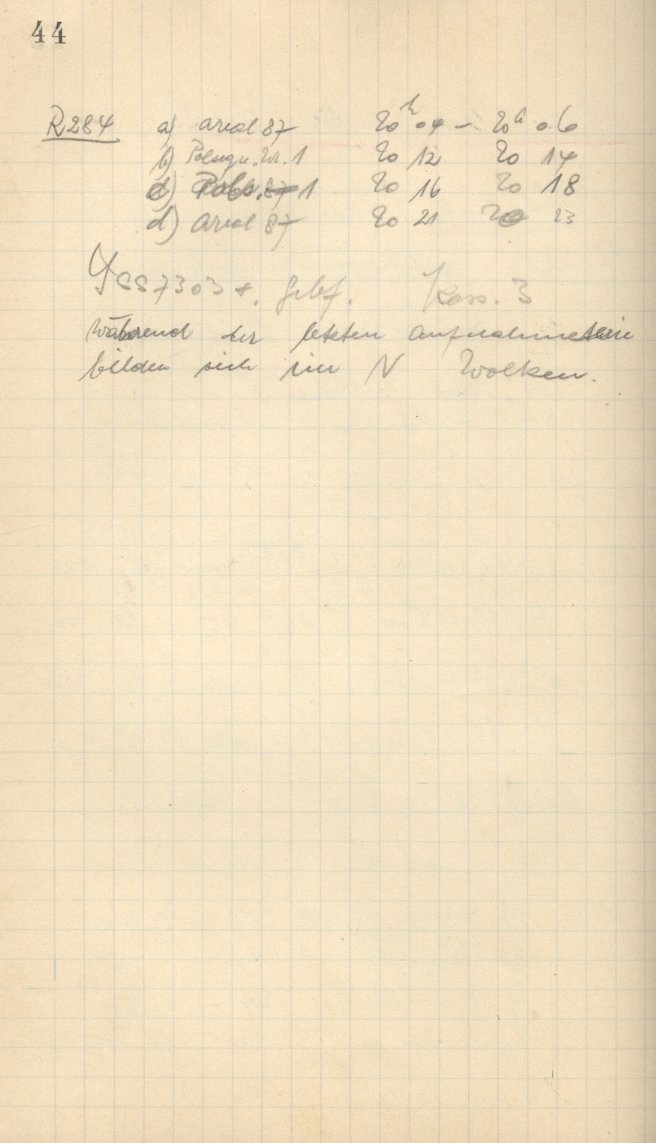 44
R284 a) Areal 87 20h 04 – 20h 06
b) Polsequ. Nr. 1 20 12 20 14
c) Pols. 1 20 16 20 18
d) Areal 87 20 21 20 23
7303 Gelbf. Kass. 3
Während der letzten Aufnahmeserie
bilden sich im N Wolken.